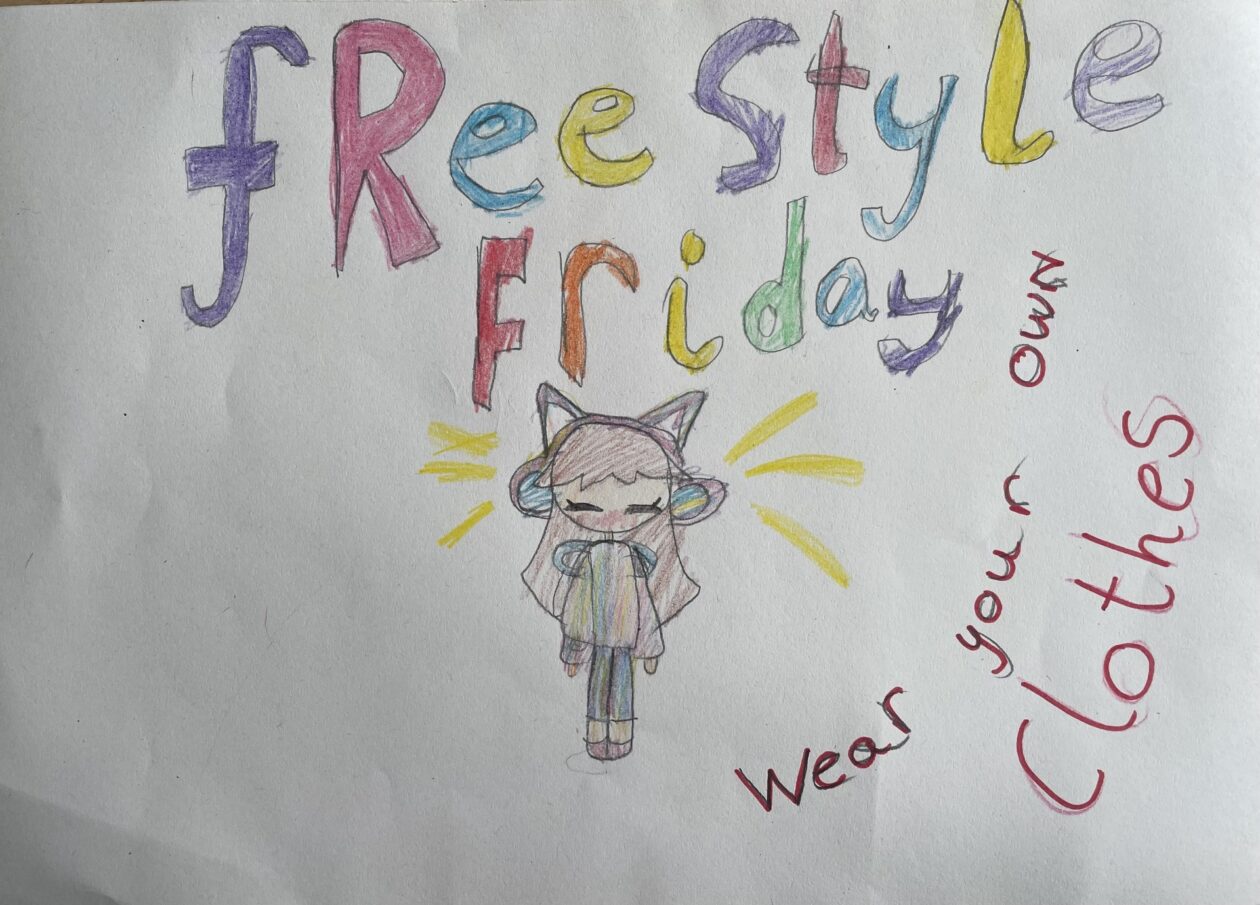 fRee style
Friday
wear your own
Clothes